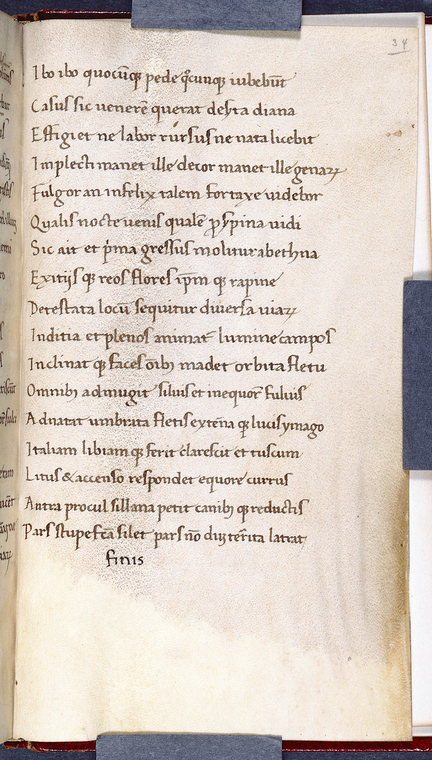 34
Ibo ibo quocūqꝫ pede q̊cunqꝫ iubebūt
Casus sic uenerē querat deserta diana
Effigiet ne labor rūrsus ne nata licebit
Implecti manet ille decor manet ille genaꝝ
Fulgor an infelix talem fortaxe uidebor
Qualis nocte uenis qualē ꝓsꝑpina uidi
Sic ait et p̓ma gressus molitur abethna
Exitijs qꝫ reos flores ip̄m qꝫ rapine
Detestata locū sequitur diuersa uiaꝝ
Inditia et plenos animat lumine campos
Inclinat qꝫ faces oīb; madet orbita fletu
Omnib; admugit siluis et inequor̄ fuluis
Adnatat umbrata fletis extēna qꝫ lucis ymago
Italiam libiam qꝫ ferit clarescit et tuscum
Litus & accenso respondet equore currus
Antra procul sillana petit canib; qꝫ reductis
Pars stupefc̄a silet pars nō dū ꝯterrita latrat
finis